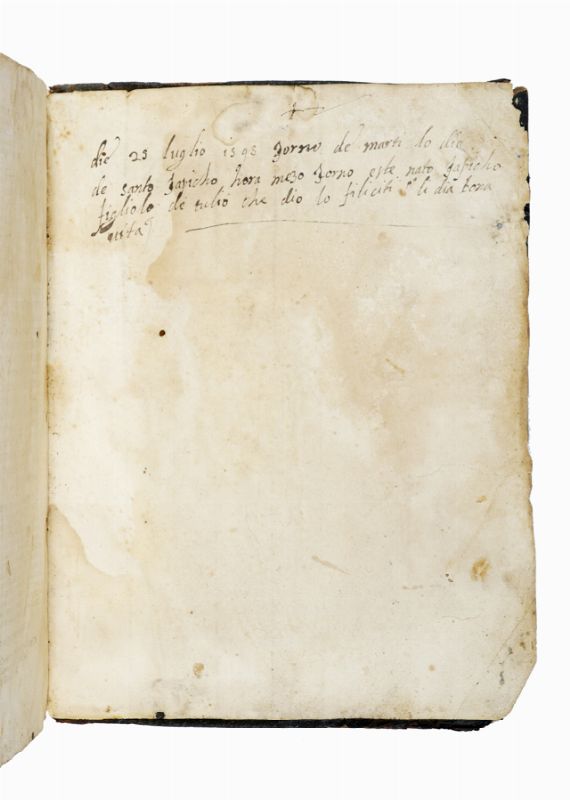 die 25 luglio 1595 Jorno de marti lo dia
de santo Japicho hora mezo Jorno este nato Japicho
figliolo de tulio che dio lo filiciti e li dia bona
vita